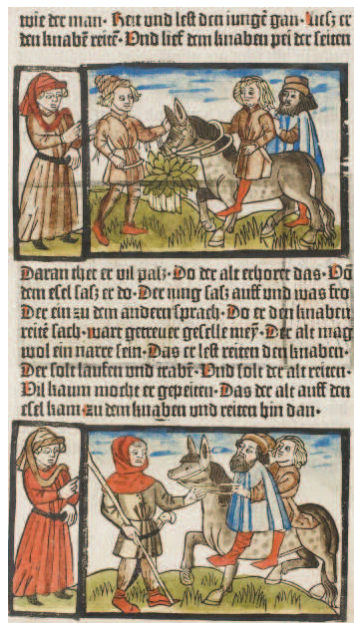 wie der man· Reit vnd lest den iungē gan· Liesz er
den knabē reitē· Vnd lief dem knaben pei der seiten
Daran thet er vil pasz· Do der alte erhoret das· Vō
dem esel sasz er do· Der iung sasz auff vnd was fro
Der ein zu dem andern sprach· Do er den knaben
reitē sach· wart getreuer geselle meȳ· Der alte mag
wol ein narre sein· Das er lest reiten den knaben·
Der solt laufen vnd trabē· Vnd solt der alt reiten·
Vil kaum mocht er gepeiten· Das der alt auff den
esel kam· zu dem knaben vnd reiten hin dan·